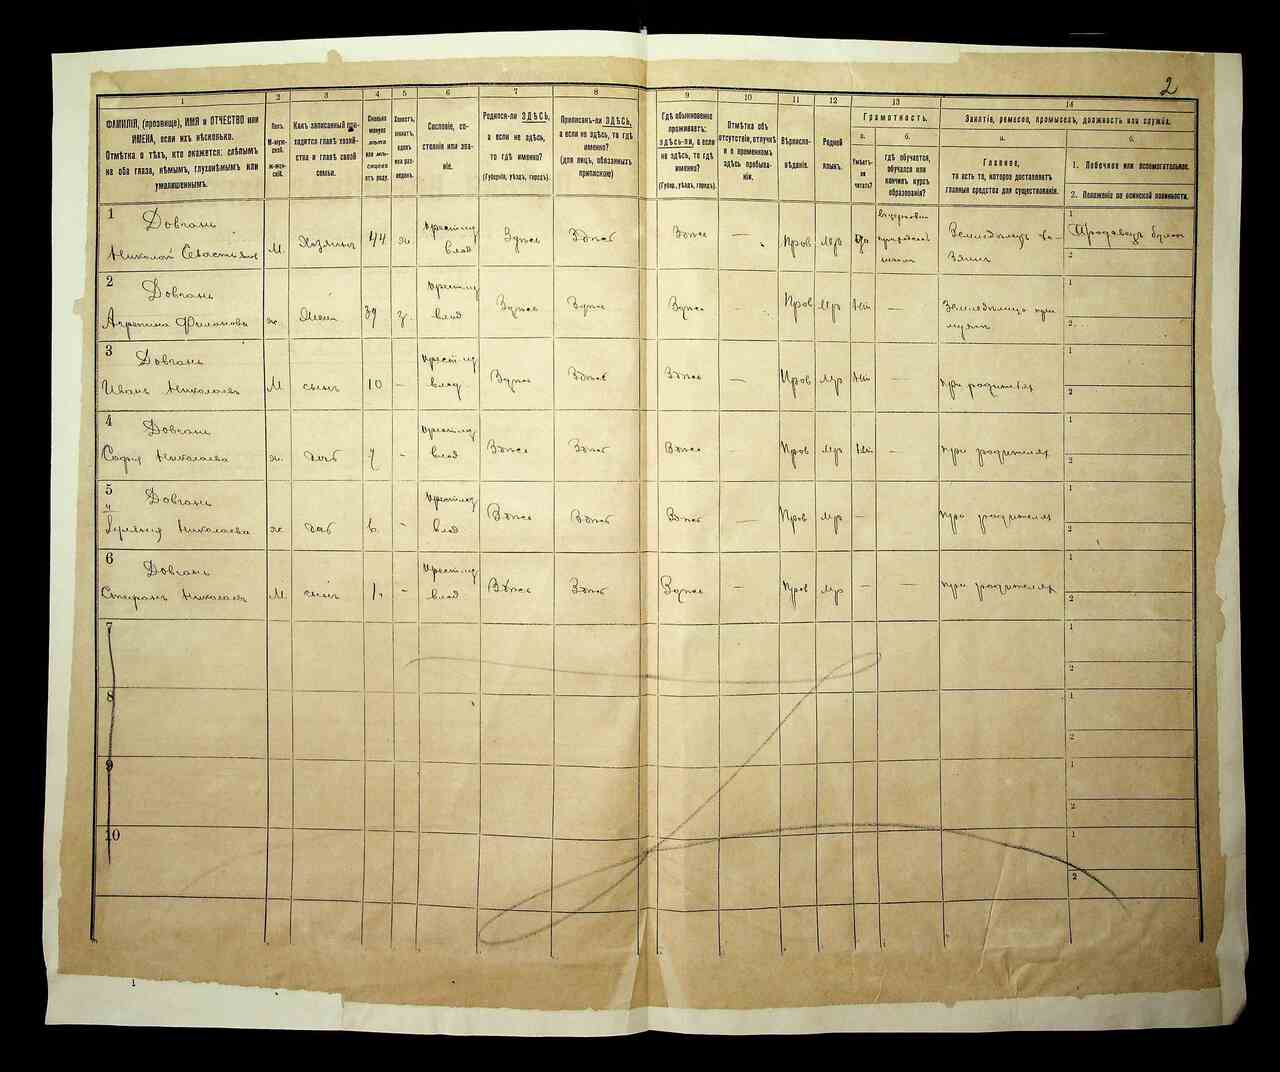 2
1
2
3
4
5
6
7
8
9
10
11
12
13
14
ФАМИЛІЯ, (прозвище), ИМЯ и ОТЧЕСТВО или
ИМЕНА, если ихъ нѣсколько.
Отмѣтка о тѣхъ, кто окажется: слѣпымъ
на оба глаза, нѣмымъ, глухонѣмымъ или
умалишеннымъ.
Полъ.
М-муж-
ской.
ж-жен-
скій.
Какъ записанный при-
ходится главѣ хозяй-
ства и главѣ своей
семьи.
Сколько
минуло
лѣтъ
или мѣ-
сяцевъ
отъ роду.
Холостъ,
женатъ,
вдовъ
или раз-
веденъ.
Сословіе, со-
стояніе или зва-
ніе.
Родился-ли ЗДѢСЬ,
а если не здѣсь,
то гдѣ именно?
(Губернія, уѣздъ, городъ).
Приписанъ-ли ЗДѢСЬ,
а если не здѣсь, то гдѣ
именно?
(для лицъ, обязанныхъ
припискою)
Гдѣ обыкновенно
проживаетъ:
здѣсь-ли, а если
не здѣсь, то гдѣ
именно?
(Губер., уѣздъ, городъ).
Отмѣтка объ
отсутствіи, отлучкѣ
и о временномъ
здѣсь пребыва-
ніи.
Вѣроиспо-
вѣданіе.
Родной
языкъ.
Грамотность.
а.
Умѣетъ-
ли
читать?
б.
гдѣ обучается,
обучался или
кончилъ курсъ
образованія?
Занятіе, ремесло, промыселъ, должность или служба.
а.
Главное,
то есть то, которое доставляетъ
главныя средства для существованія.
б.
1. Побочное или вспомогательное.
2. Положеніе по воинской повинности.
1
Довгань
Николай Севастьянов М. Хозяинъ 44 ж. Крест. из влад Здѣсь Здѣсь Здѣсь — Прав Мр Да
школѣ
Земледѣлецъ хо-
зяинъ
1
2
2
Довгань
Агрепина Филимонова ж. Жена 39 з. Крест. из влад Здѣсь Здѣсь Здѣсь — Прав Мр Нѣт —
Земледѣлица при
мужѣ
1
2
3
Довгань
Иванъ Николаевъ М сынъ 10 — Крест. из влад Здѣсь Здѣсь Здѣсь — Прав Мр Нѣт — при родителях
1
2
4
Довгань
Софія Николаева ж. доч 7 - Крест. из влад Здѣсь Здѣсь Здѣсь — Прав Мр Нѣт — при родителях
1
2
5
Довгань
Николаева ж доч - Крест. из влад Здѣсь Здѣсь Здѣсь — Прав Мр — при родителях
1
2
6
Довгань
Спиридонъ Николаевъ М. сынъ - Крест. из влад Здѣсь Здѣсь Здѣсь — Прав Мр — — при родителях
1
2
7
1
2
8
1
2
9
1
2
10
1
2